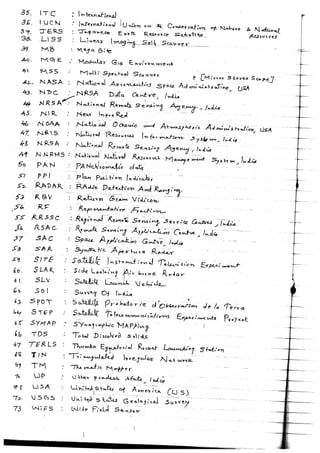 35. ITC : International
36. IUCN : International Union on & Conservation of Nature & Natural Resources
37. JERS : Japanese Earth Resource Satellite
38. LISS : Linear Imaging Self Scanner
39. MB : Mega Bite
40. MGE : Modular Gis Environment
41. MSS : Multi Spectral Scanner
42. NASA : National Aeronautics Space Administration, USA
43. NDC : NRSA Data Centre, India
44 NRSA : National Remote Sensing Agency, India
45. NIR : Near Infra Red
46 NOAA : National Oceanic and Atmospheric Administration, USA
47. NRIS : Natural Resources Information System, India
48 NRSA : National Remote Sensing Agency, India
49 NNRMS : National Natural Resources Management System, India
50 PAN : PANchromatic data
51 PPI : Plan Position Indicator
52 RADAR : RAdio Detection And Ranging
53 RBV : Return Beam Vidicon
54 RF : Representative Fraction
55 RRSSC : Regional Remote Sensing Service Centres, India
56 RSAC : Remote Sensing Application Centre, India
57 SAC : Space Application Centre, India
58 SAR : Synthetic Aperture Radar
59 SITE : Satellite Instructional Television Experiment
60. SLAR : Side Looking Air borne Radar
61. SLV : Satellite Launch Vehicle
62 SOI : Survey Of India
63 SPOT : Satellite d'Observation de la Terra
64 STEP : Satellite Telecommunications Experiments Project
65 SYMAP : SYnagraphic MAPping
66 TDS : Total Dissolved Solids
67 TERLS : Thumba Equatorial Rocket Launching Station
68 TIN : Triangulated Irregular Network
69 TM : Thematic Mapper
70 UP : Utter pradesh state, India
71 USA : United States of America (US)
72. USGS : United States Geological Survey
73 WiFS : Wide Field Sensor